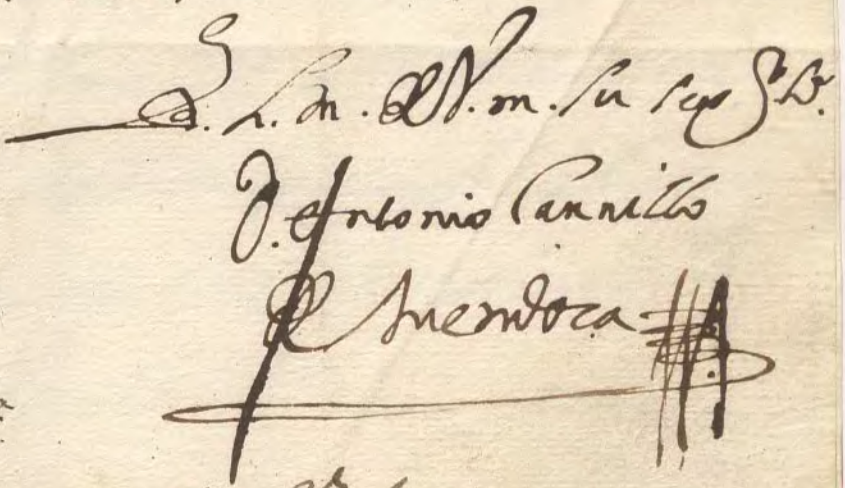 B. L. M. de V. m. su
D. Antonio Carrillo
de Mendoça